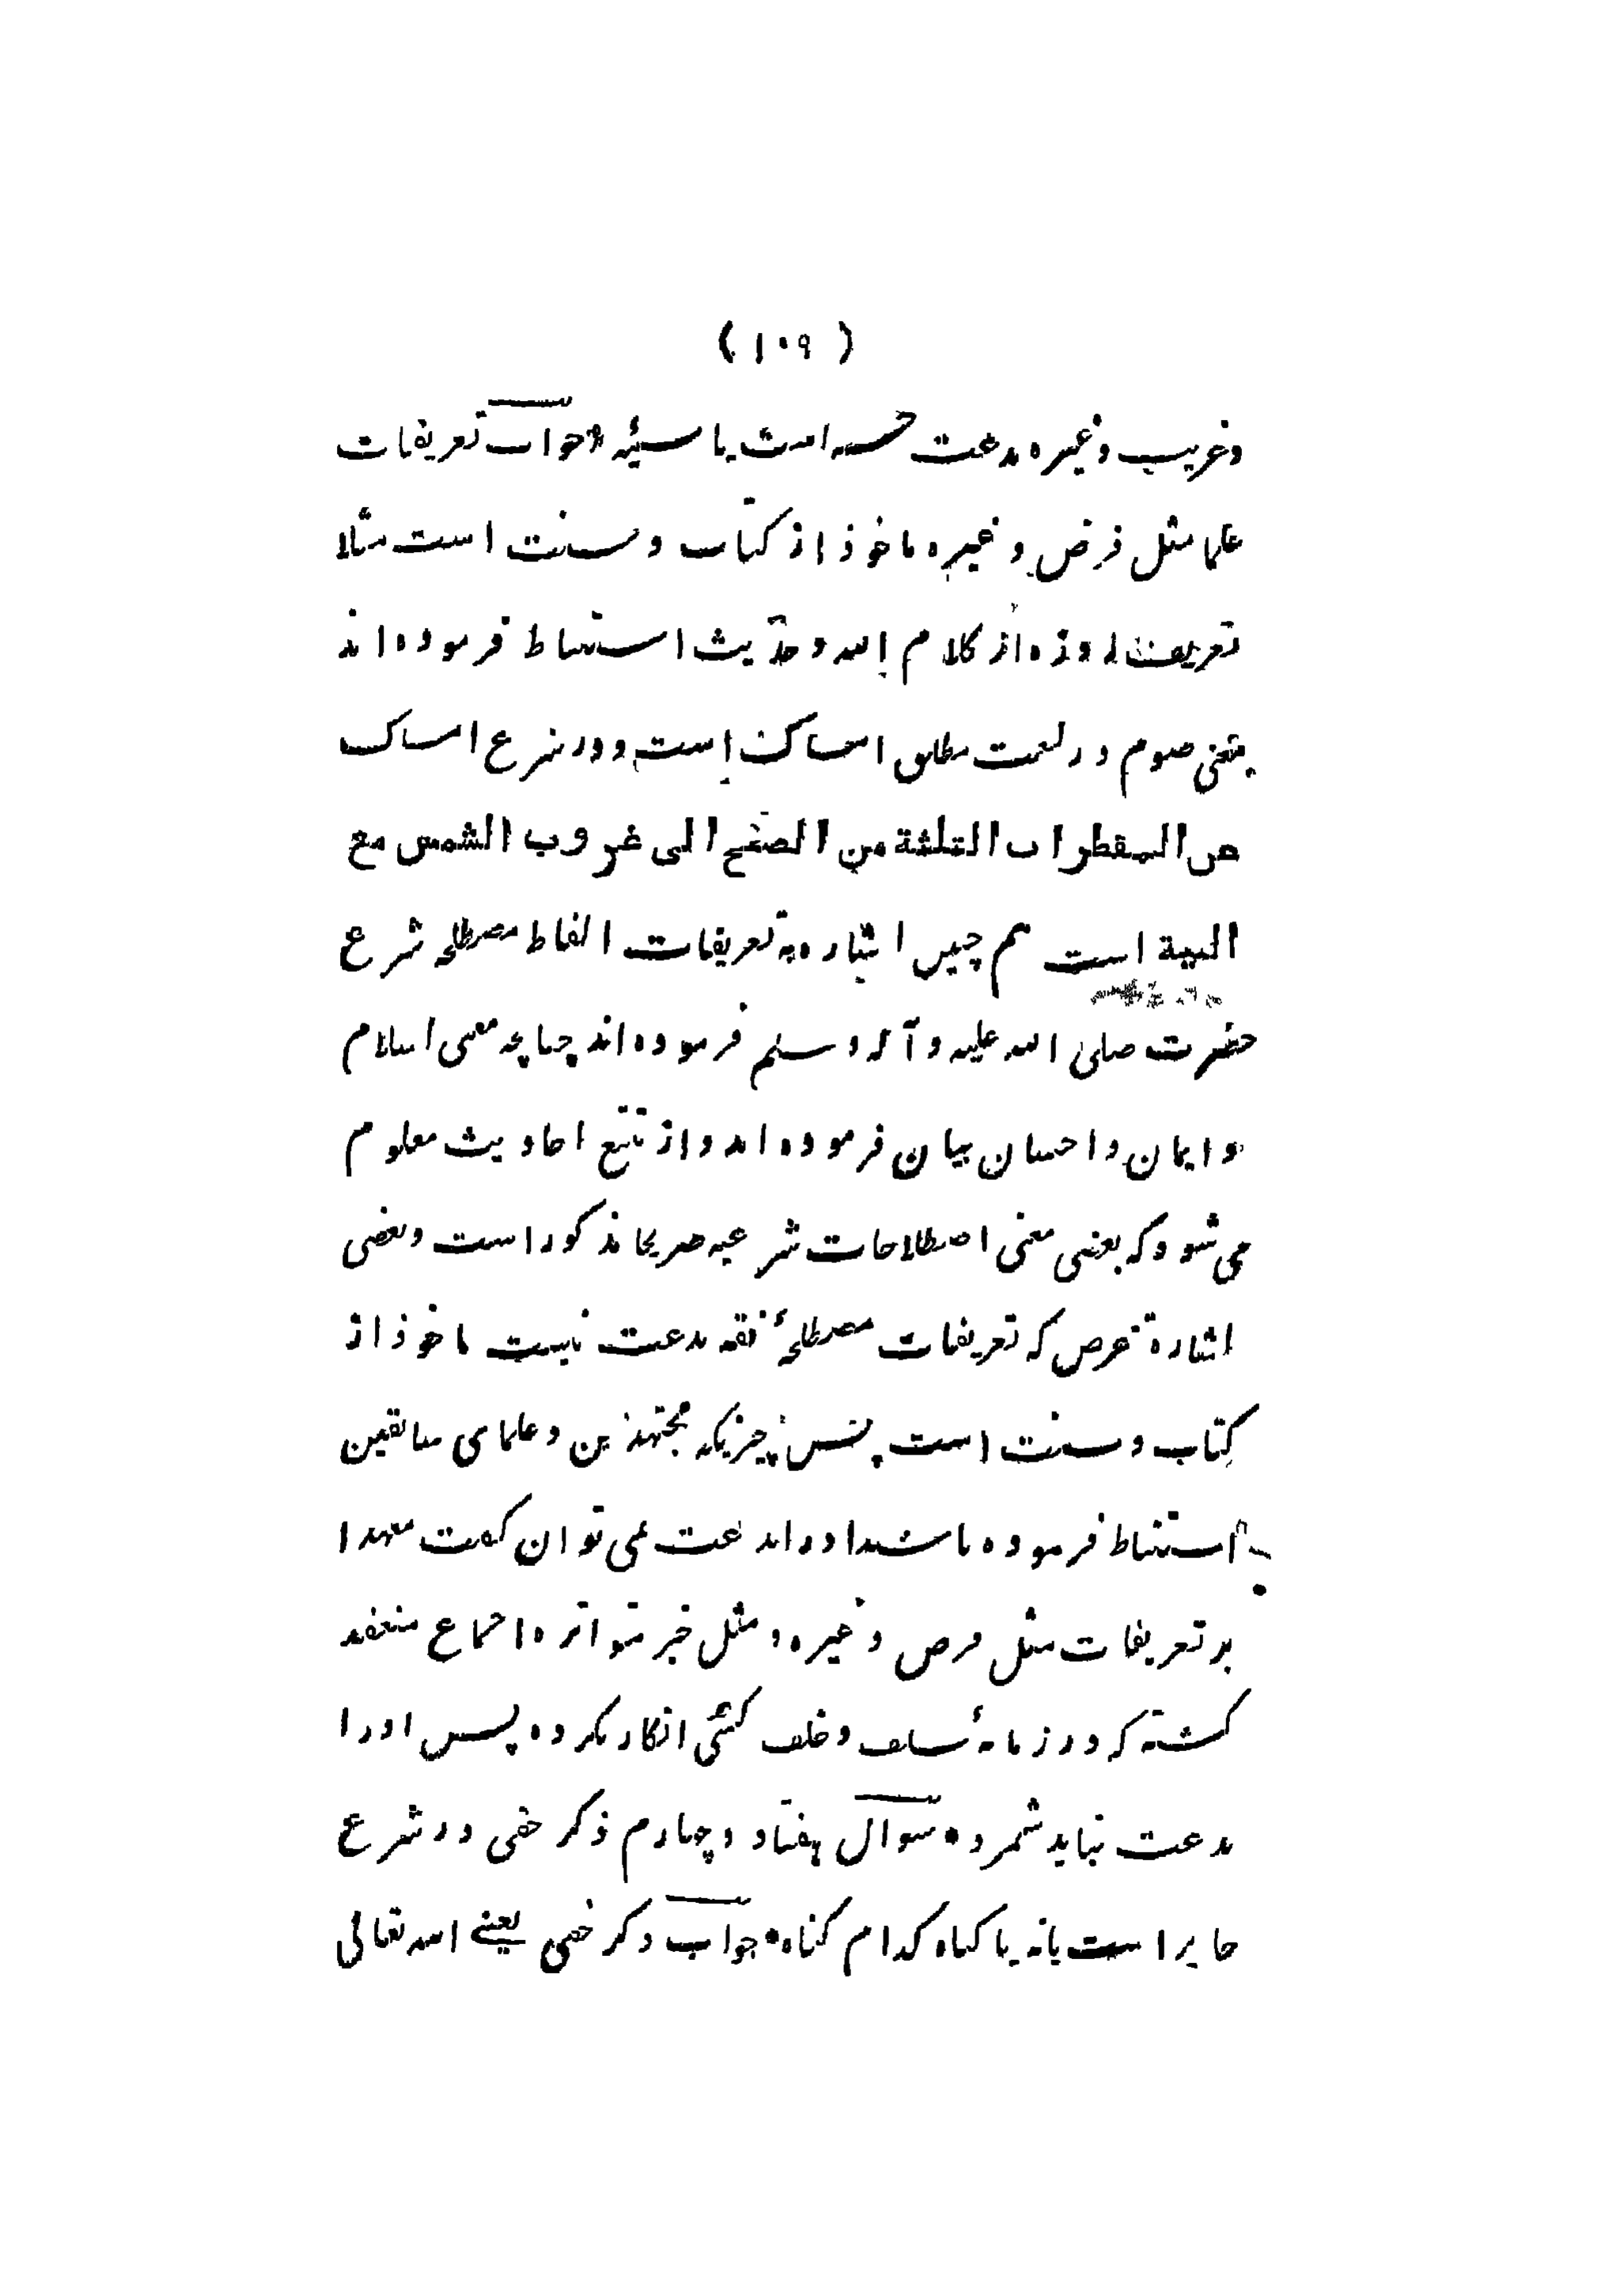 (۱۰۹)
وغریب وغیره بدعت حسنه است یا سیئه * جواب تعریفات
علما مثل فرض وغیره ماخوذ از کتاب وسنت است مثلا
تعریف روزه از کلام الله وحدیث استنباط فرموده اند
یعنی صوم در لغت مطلق امساک است ودر شرع امساک
من المفطرات الثلثة من الصبح الی غروب الشمس مع
النیة است هم چنین اشاره به تعریفات الفاظ مصطلحه شرع
حضرت صلی الله علیه وآله وسلم فرموده اند چنانچه معنی اسلام
وایمان واحسان بیان فرموده اند واز تتبع احادیث معلوم
می شود که بعضی معنی اصطلاحات شرعیه صریحا مذکور است وبعضی
اشارة غرض که تعریفات مصطلحهٔ فقه بدعت نیست ماخوذ از
کتاب وسنت است پس چیزیکه مجتهدین وعلمای سابقین
استنباط فرموده باشند اورا بدعت نمی توان گفت معهذا
بر تعریفات مثل فرض وغیره ومثل خبر متواتره اجماع منعقد
گشته که در زمانهٔ سلف وخلف کسی انکار نکرده پس اورا
بدعت نباید شمرد * سوال هفتاد وچهارم ذکر خفی در شرع
جایز است یا نه یا گناه کدام گناه * جواب ذکر خفی یعنی الله تعالی